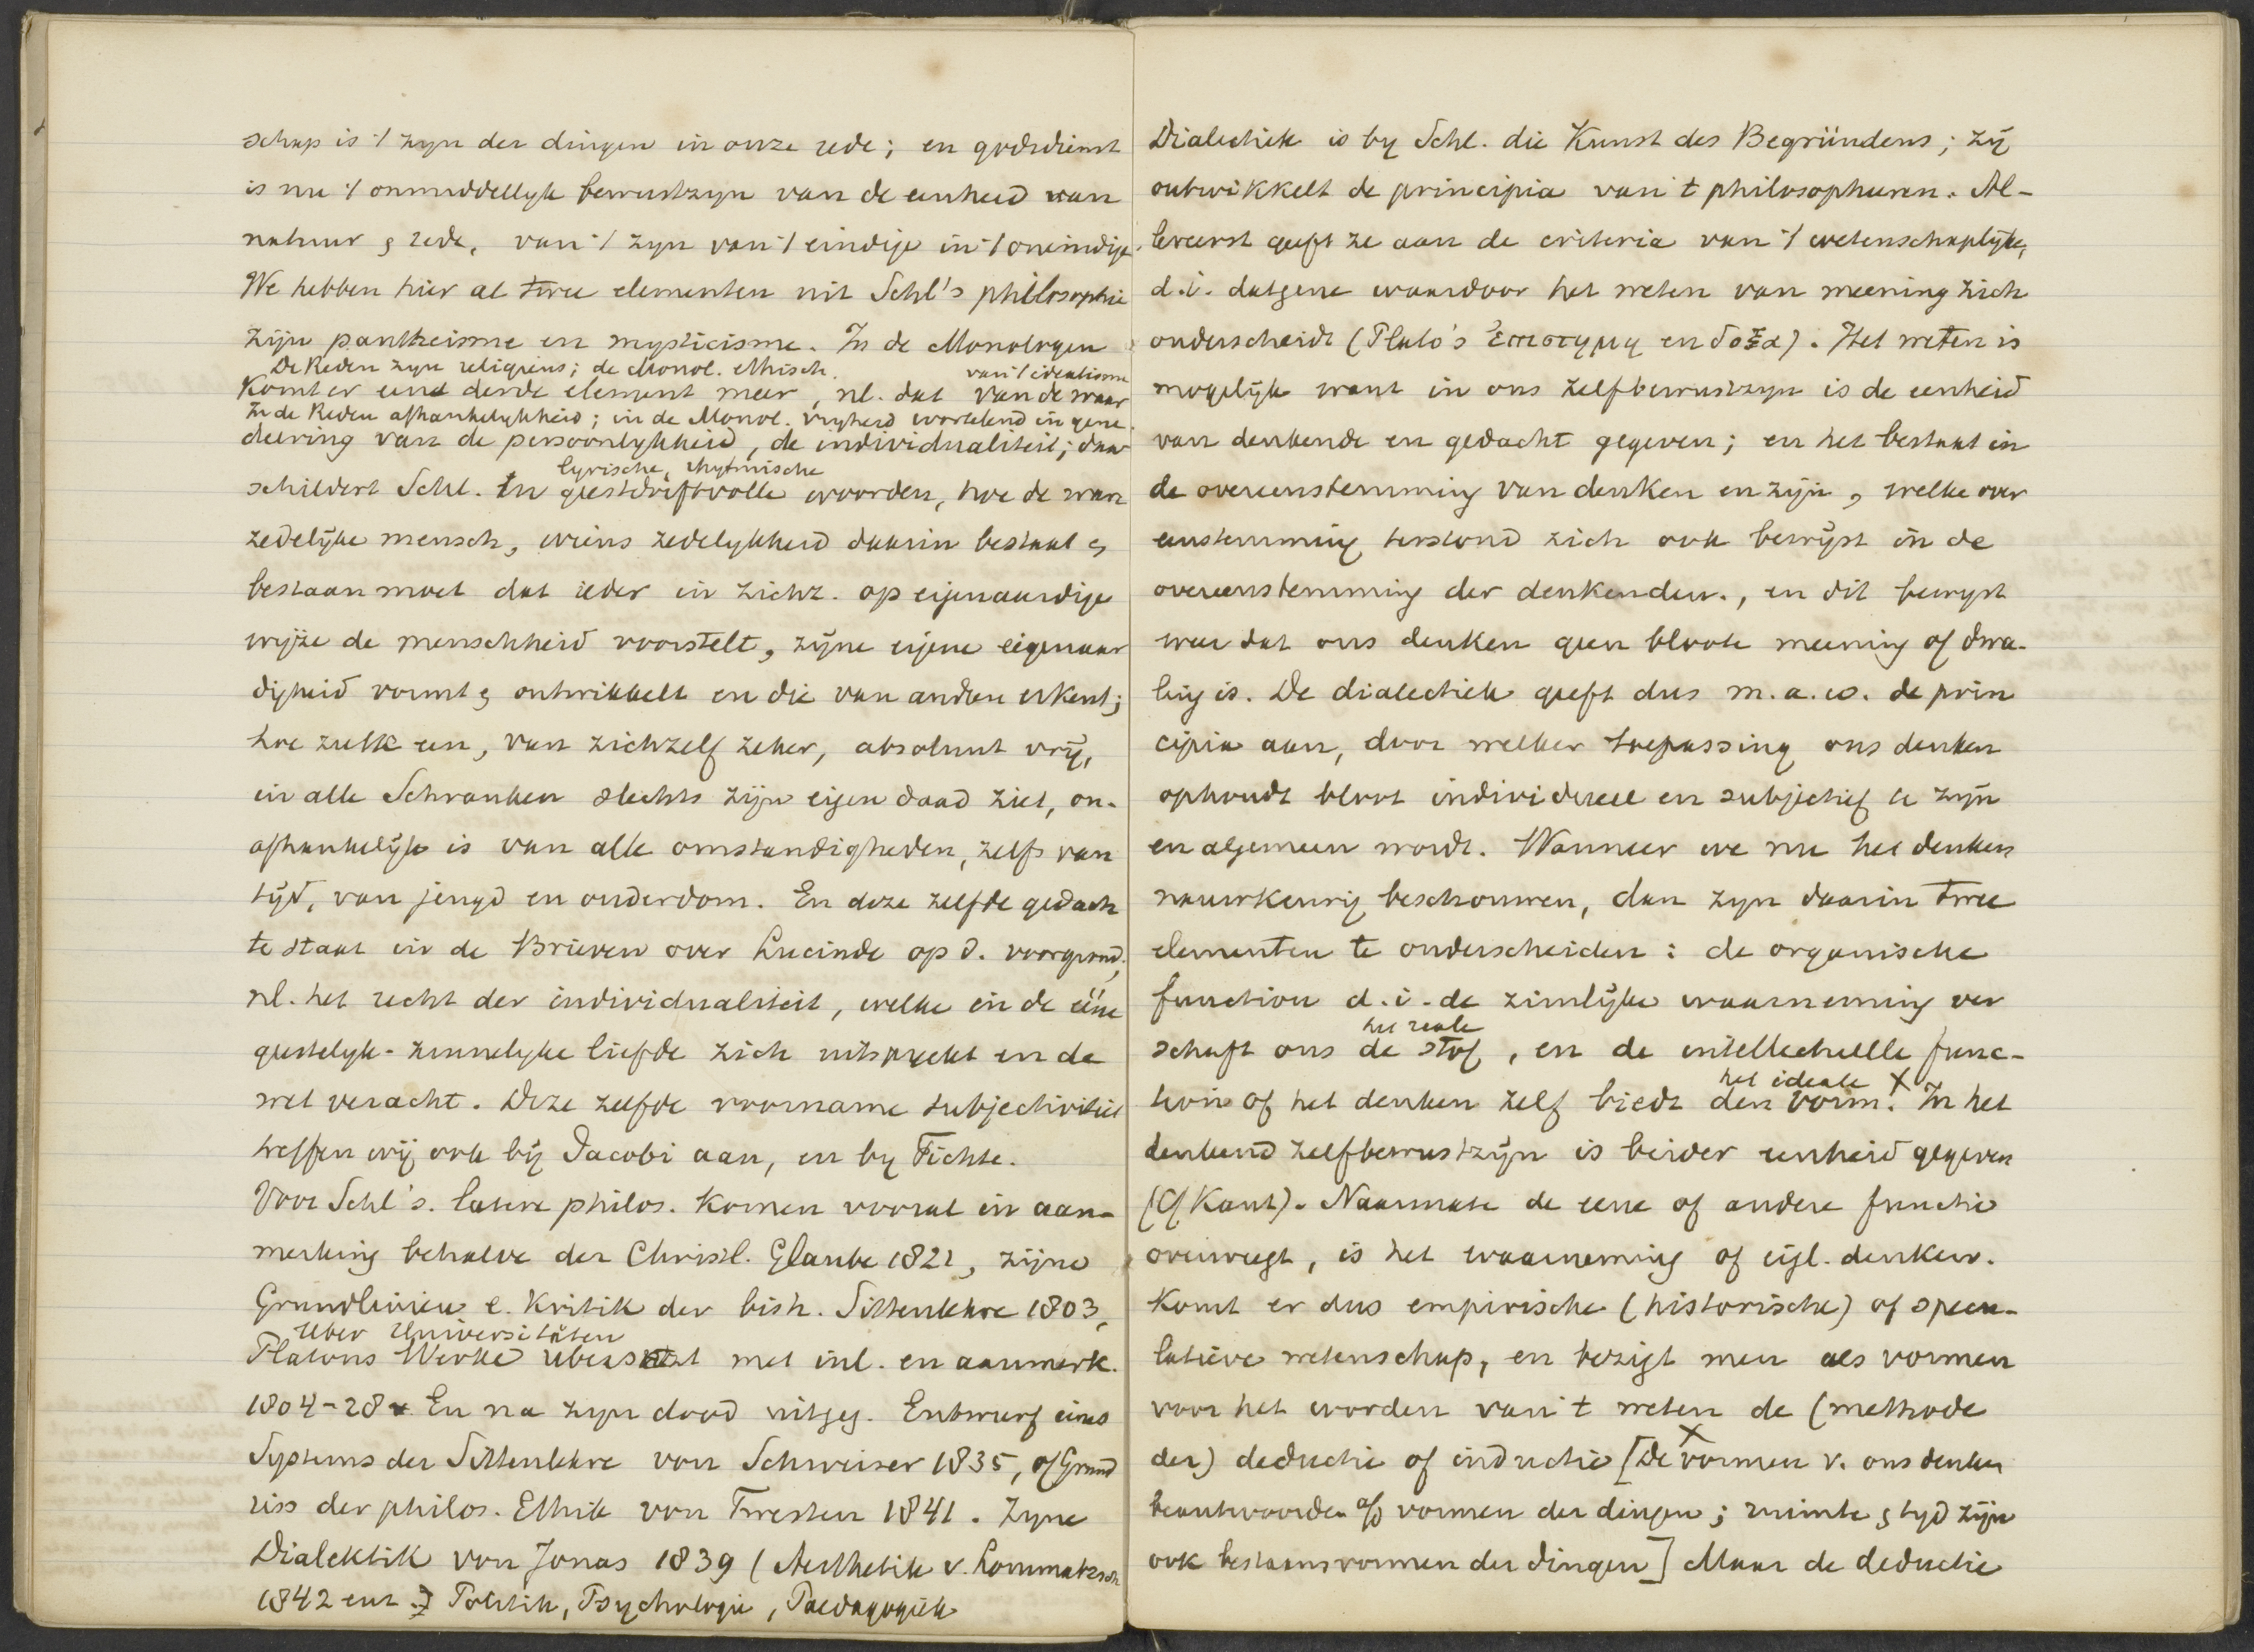 schap is 't zyn der dingen in onze rede; en godsdienst
is nu 't onmiddellyk bewustzyn van de eenheid van
natuur & rede, van 't zyn van 't eindige in 't oneindige.
We hebben hier al twee elementen uit Schl's philosophie
zijn pantheisme en mysticisme. In de Monologen
De Reden zyn religieus; de Monol. ethisch. van 't idealisme
komt er een derde element meer, nl. dat van de waar
In de Reden afhankelykheid; in de Monol. vryheid wortelend in gene.
deering van de persoonlykheid, de individualiteit; daar
lyrische, rhytmische
schildert Schl. in geestdriftvolle woorden, hoe de waar
zedelijke mensch, wiens zedelykheid daarin bestaat &
bestaan moet dat ieder in zichz. op eigenaardige
wijze de menschheid voorstelt, zijne eigene eigenaar
digheid vormt & ontwikkelt en die van andren erkent;
hoe zulk een, van zichzelf zeker, absoluut vrij,
in alle Schranken slechts zijn eigen daad ziet, on-
afhankelijk is van alle omstandigheden, zelfs van
tijd, van jeugd en ouderdom. En deze zelfde gedach
te staat in de Brieven over Lucinde op d. voorgrond,
nl. het recht der individualiteit, welke in de ééne
geestelyk-zinnelyke liefde zich uitspreekt en de
wet veracht. Deze zelfde voorname subjectiviteit
treffen wij ook bij Jacobi aan, en by Fichte.
Voor Schl's. latere philos. komen vooral in aan-
merking behalve der Christl. Glaube 1821, zijne
Grundlinien e. Kritik der bish. Sittenlehre 1803,
Uber Universitäten
Platons Werke übersetzt met inl. en aanmerk.
1804-28. En na zyn dood uitgeg. Entwurf eines
Systems der Sittenlehre von Schweizer 1835, of Grund
riss der philos. Ethik von Twesten 1841. Zyne
Dialektik von Jonas 1839 (Aesthetik v. Lommatzsch
1842 enz.) Politik, Psychologie, Paedagogiek
Dialectiek is by Schl. die Kunst des Begründens; zij
ontwikkelt de principia van 't philosopheeren. Al-
lereerst geeft ze aan de criteria van 't wetenschaplijke,
d.i. datgene waardoor het weten van meening zich
onderscheidt (Plato's Επιστημη en δοξα). Het weten is
mogelijk want in ons zelfbewustzyn is de eenheid
van denkende en gedacht gegeven; en het bestaat in
de overeenstemming van denken en zijn, welke over
eenstemming terstond zich ook bewijst in de
overeenstemming der denkenden, en dit bewyst
weer dat ons denken geen bloote meening of dwa-
ling is. De dialectiek geeft dus m.a.w. de prin
cipia aan, door welker toepassing ons denken
ophoudt bloot individueel en subjectief te zijn
en algemeen wordt. Wanneer we nu het denken
nauwkeurig beschouwen, dan zyn daarin twee
elementen te onderscheiden: de organische
function d.i. de zinlijke waarneming ver
het reale
schaft ons de stof, en de intellectuelle func-
het ideale X
tion of het denken zelf biedt den vorm. In het
denkend zelfbewustzijn is beider eenheid gegeven
(Cf Kant). Naarmate de eene of andere functie
overweegt, is het waarneming of eigl. denken.
Komt er dus empirische (historische) of specu-
latieve wetenschap, en bezigt men als vormen
voor het worden van 't weten de (methode
X
der) deductie of inductie [De vormen v. ons denken
beantwoorden a/d vormen der dingen; ruimte & tyd zijn
ook bestaansvormen der dingen] Maar de deductie